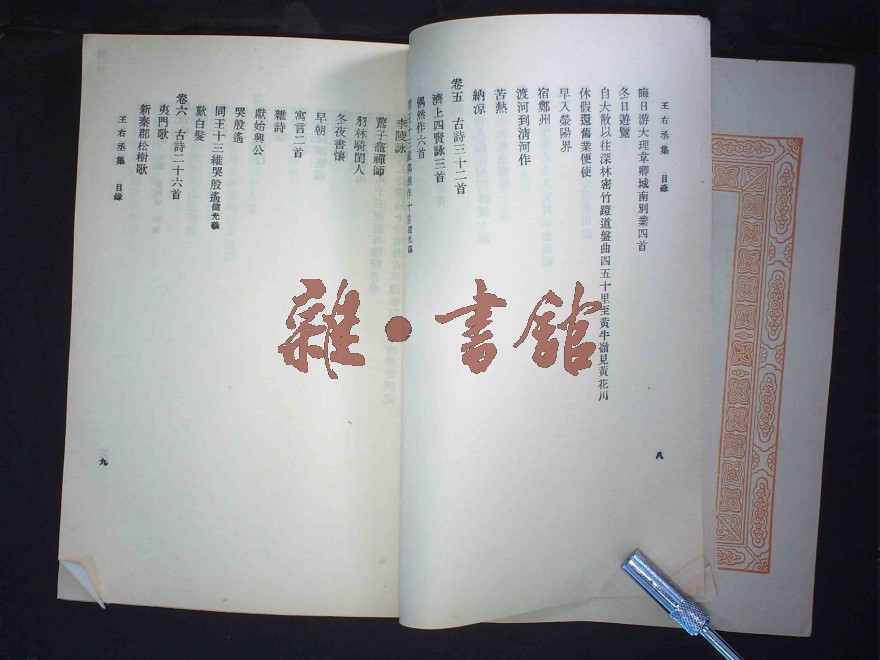 王右丞集 目錄
晦日游大理韋卿城南別業四首
冬日遊覽
自大散以往深林密竹蹬道盤曲四五十里至黃牛嶺見黃花川
休假還舊業便使
早入滎陽界
宿鄭州
渡河到清河作
苦熱
納涼
卷五 古詩三十二首
濟上四賢詠三首
偶然作六首
八
李陵詠
羽林騎閨人
冬夜書懷
早朝
寓言二首
雜詩
獻始興公
哭殷遙
同王十三維哭殷遙儲光羲
歎白髮
卷六 古詩二十六首
夷門歌
新秦郡松樹歌
王右丞集 目錄
九
雜·書館